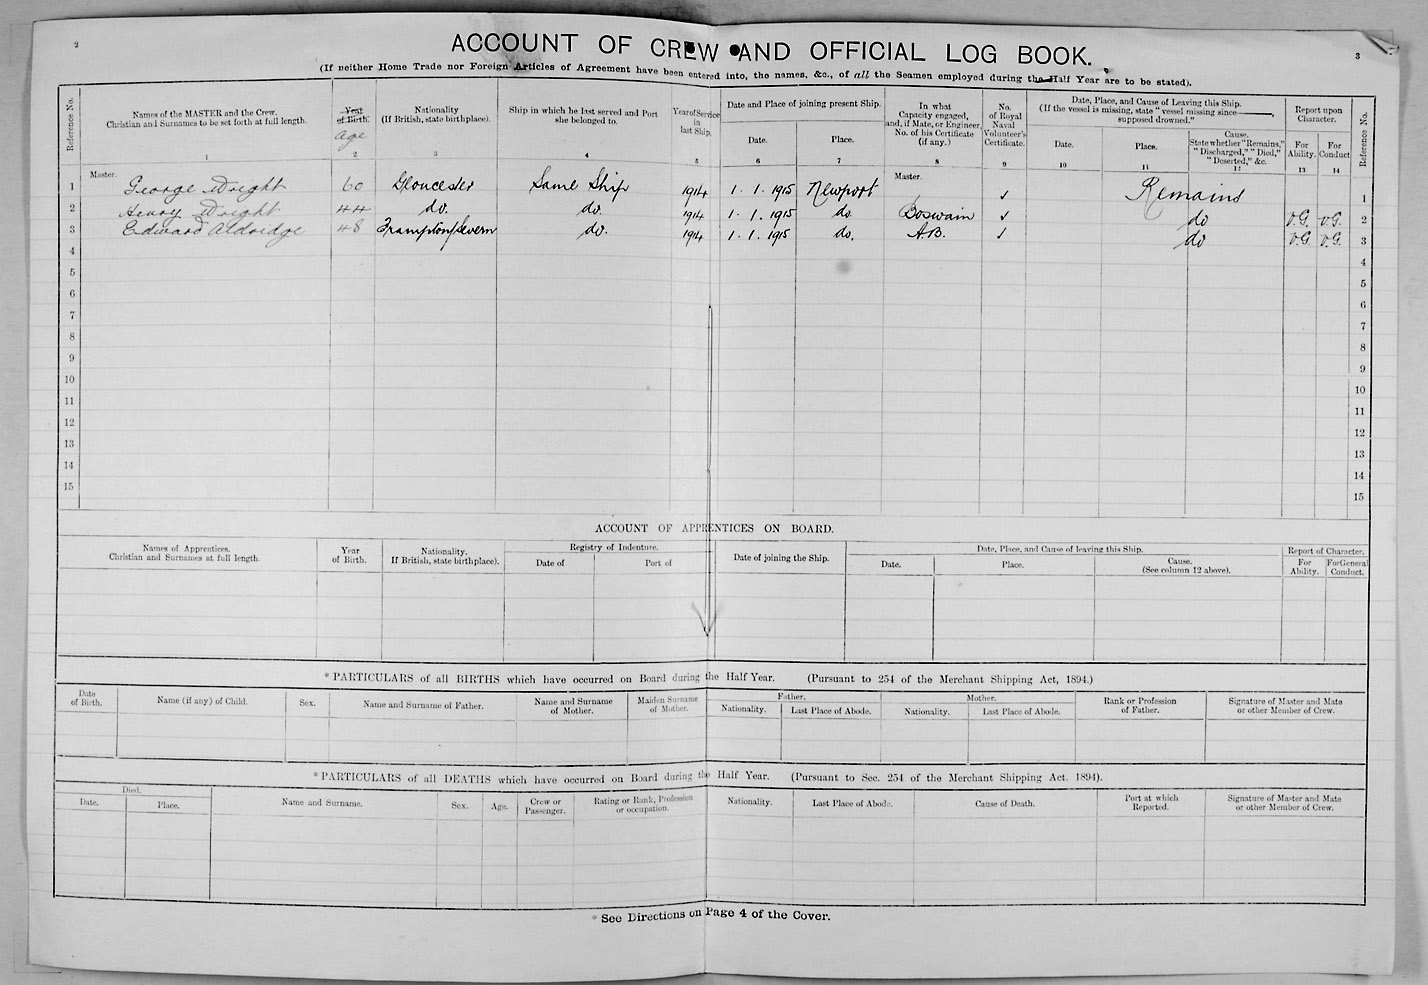 2
3
ACCOUNT OF CREW AND OFFICIAL LOG BOOK.
(If neither Home Trade nor Foreign Articles of Agreement have been entered into, the names, &c., of all the Seamen employed during the Half Year are to be stated).
Reference No.
Names of the MASTER and the Crew.
Christian and Surnames to be set forth at full length.
1
Year of Birth.
age
2
Nationality
(If British, state birthplace).
3
Ship in which he last served and Port
she belonged to.
4
Year of Service
in
last Ship.
5
Date and Place of joining present Ship.
Date.
6
Place.
7
In what
Capacity engaged,
and, if Mate, or Engineer,
No. of his Certificate
(if any.)
8
No.
of Royal
Naval
Volunteer's
Certificate.
9
Date, Place, and Cause of Leaving this Ship.
(If the vessel is missing, state "vessel missing since ———,
supposed drowned."
Date.
10
Place.
11
Cause.
State whether "Remains,"
"Discharged," "Died,"
"Deserted," &c.
12
Report upon
Character.
For
Ability.
13
For
Conduct
14
Reference No.
Master. Master.
1 George Wright 60 Gloucester Same Ship 1914 1. 1. 1915 Newport ✓ Remains 1
2 Henry Wright 44 do. do. 1914 1. 1. 1915 do. Boswain ✓ do V.G. V.G. 2
3 Edward Aldridge 48 Frampton/Severn do. 1914 1. 1. 1915 do. A.B. ✓ do V.G. V.G. 3
4 4
5 5
6 6
7 7
8 8
9 9
10 10
11 11
12 12
13 13
14 14
15 15
ACCOUNT OF APPRENTICES ON BOARD.
Names of Apprentices.
Christian and Surnames at full length.
Year
of Birth.
Nationality.
If British, state birthplace).
Registry of Indenture.
Date of
Port of
Date of joining the Ship.
Date, Place, and Cause of leaving this Ship.
Date.
Place.
Cause.
(See column 12 above).
Report of Character.
For
Ability.
For General
Conduct.
* PARTICULARS of all BIRTHS which have occurred on Board during the Half Year. (Pursuant to 254 of the Merchant Shipping Act, 1894.)
Date
of Birth.
Name (if any) of Child.
Sex.
Name and Surname of Father.
Name and Surname
of Mother.
Maiden Surname
of Mother.
Father.
Nationality.
Last Place of Abode.
Mother.
Nationality.
Last Place of Abode.
Rank or Profession
of Father.
Signature of Master and Mate
or other Member of Crew.
* PARTICULARS of all DEATHS which have occurred on Board during the Half Year. (Pursuant to Sec. 254 of the Merchant Shipping Act. 1894).
Died.
Date.
Place.
Name and Surname.
Sex.
Age.
Crew or
Passenger.
Rating or Rank, Profession
or occupation.
Nationality.
Last Place of Abode.
Cause of Death.
Port at which
Reported.
Signature of Master and Mate
or other Member of Crew.
* See Directions on Page 4 of the Cover.